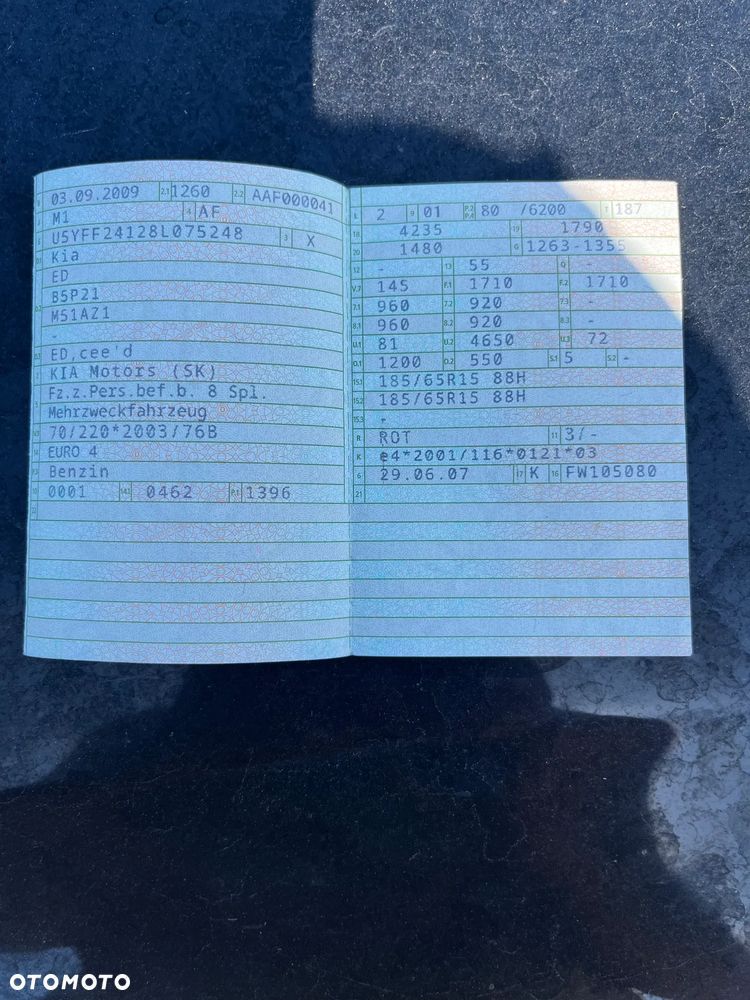 B 03.09.2009 2.1 1260 2.2 AAF000041
J M1 4 AF
E U5YFF24128L075248 3 X
D.1 Kia
ED
B5P21
D.2 M51AZ1
-
D.3 ED,cee'd
2 KIA Motors (SK)
5 Fz.z.Pers.bef.b. 8 Spl.
Mehrzweckfahrzeug
V.9 70/220*2003/76B
14 EURO 4
P.3 Benzin
10 0001 14.1 0462 P.1 1396
22
L 2 9 01 P.2 P.4 80 /6200 T 187
18 4235 19 1790
20 1480 G 1263-1355
12 - 13 55 Q -
V.7 145 F.1 1710 F.2 1710
7.1 960 7.2 920 7.3 -
8.1 960 8.2 920 8.3 -
U.1 81 U.2 4650 U.3 72
O.1 1200 O.2 550 S.1 5 S.2 -
15.1 185/65R15 88H
15.2 185/65R15 88H
15.3 -
R ROT 11 3/-
K e4*2001/116*0121*03
6 29.06.07 17 K 16 FW105080
21
OTOMOTO